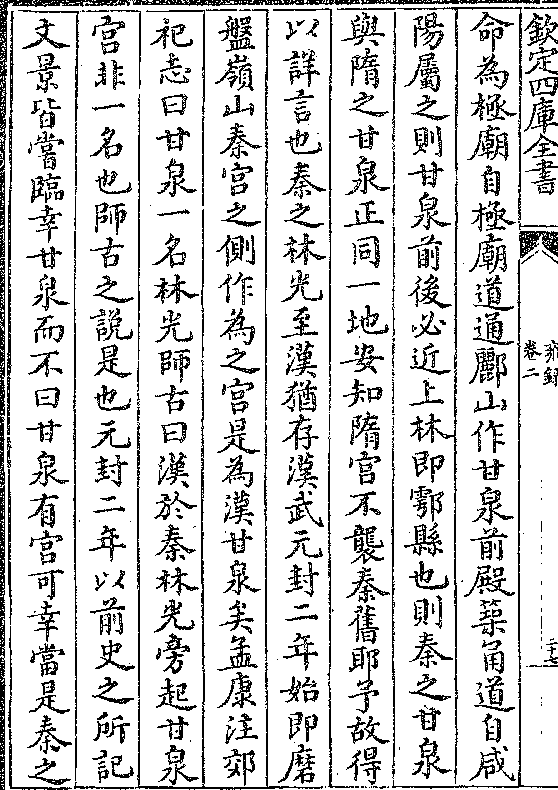 欽定四庫全書
雍録
卷二
二十
命為極廟自極廟道通酈山作甘泉前殿築甬道自咸
陽屬之則甘泉前後必近上林即鄠縣也則秦之甘泉
與隋之甘泉正同一地安知隋宮不襲秦舊耶予故得
以詳言也秦之林光至漢猶存漢武元封二年始即磨
盤嶺山秦宮之側作為之宮是為漢甘泉矣孟康注郊
祀志曰甘泉一名林光師古曰漢於秦林光旁起甘泉
宮非一名也師古之說是也元封二年以前史之所記
文景皆嘗臨幸甘泉而不曰甘泉有宮可幸當是秦之